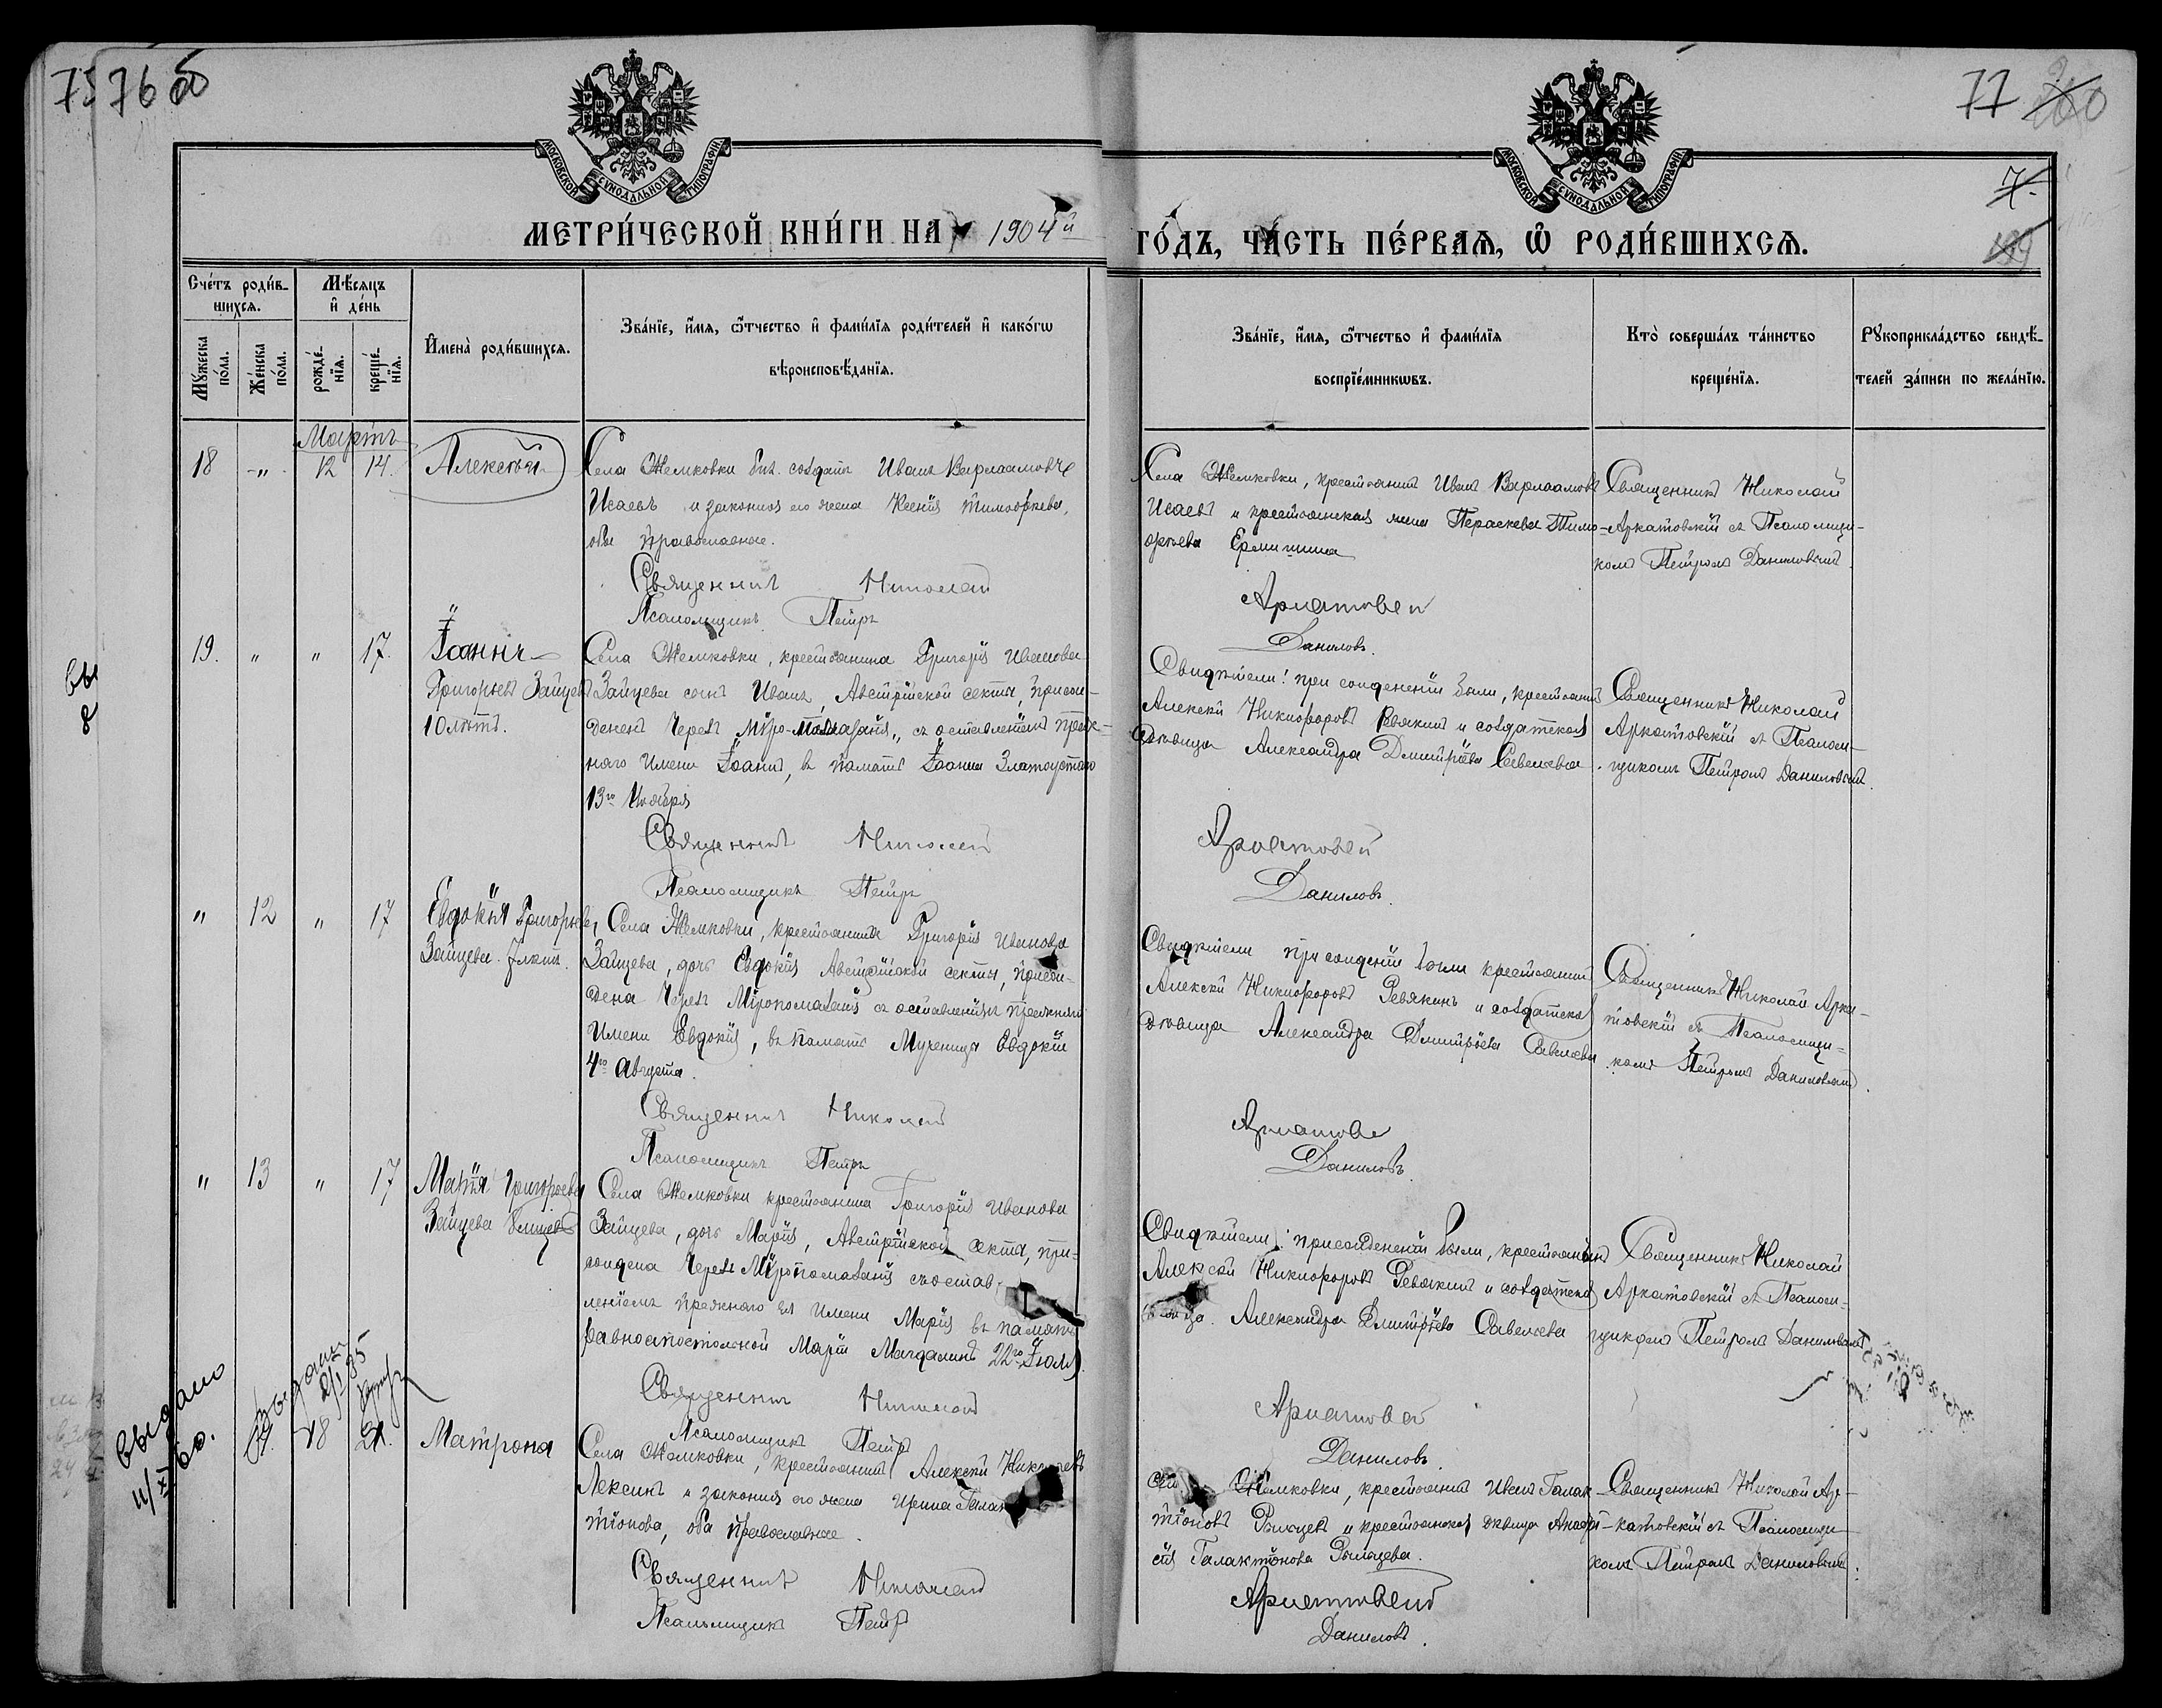 75 76 об
77
МОСКОВСКОЙ СѴНОДАЛЬНОЙ ТИПОГРАФІИ
МОСКОВСКОЙ СѴНОДАЛЬНОЙ ТИПОГРАФІИ
МЕТРИ́ЧЕСКОЙ КНИ́ГИ НА 1904й
ГО́ДЪ, ЧА́СТЬ ПЕ́РВАЯ, Ѿ РОДИ́ВШИХСЯ.
Сче́тъ роди́в-
шихся.
Мꙋ́жеска по́ла.
Же́нска по́ла.
Мѣ́сяцъ
и҆ де́нь
рожде́-
нїя.
креще́-
нїя.
И҆мена̀ роди́вшихся.
Зва́нїе, и҆́мя, ѻ҆́тчество и҆ фами́лїя роди́телей и҆ како́гѡ
вѣроисповѣ́данїя.
Зва́нїе, и҆́мя, ѻ҆́тчество и҆ фами́лїя
воспрїе́мникѡвъ.
Кто̀ соверша́лъ та́инство
креще́нїя.
Рꙋкоприкла́дство свидѣ́-
телей за́писи по жела́нїю.
Мартъ
18 „ 12 14. Алексѣй
Села Жемковки солдатъ Иванъ Варлаамовъ
Исаевъ и законная его жена Ксенія Тимофеева,
оба православные.
Священникъ Николай
Псаломщикъ Петръ
Села Жемковки, крестьянинъ Иванъ Варлаамовъ
Исаевъ и крестьянская жена Параскева Тимо-
фѣева
Аркатовскій
Даниловъ.
Священникъ Николай
Аркатовскій съ Псаломщи-
комъ Петромъ Даниловымъ
19. „ „ 17. Іоаннъ
Григорьевъ Зайцевъ
10 лѣтъ.
Села Жемковки, крестьянина Григорія Иванова
Зайцева сынъ Иванъ, Австрійской секты, присое-
диненъ чрезъ Мѵро-Помазаніе, съ оставленіемъ преж-
няго имени Іоаннъ, въ память Іоанна Златоустаго
13го Ноября
Священникъ Николай
Псаломщикъ Петръ
Свидѣтели: при соединеніи были, крестьянинъ
Алексѣй Никифоровъ Ревякинъ и солдатская
вдовица Александра Дмитріева Савельева.
Аркатовскій
Даниловъ.
Священникъ Николай
Аркатовскій съ Псалом-
щикомъ Петромъ Даниловымъ.
„ 12 „ 17 Евдокія Григорьева
Зайцева. 7 лѣтъ.
Села Жемковки, крестьянина Григорія Иванова
Зайцева, дочь Евдокія Австрійской секты, присое-
динена чрезъ Мѵропомазаніе съ оставленіемъ прежняго
имени Евдокія, въ память Мученицы Евдокіи
4го Августа.
Священникъ Николай
Псаломщикъ Петръ
Свидѣтели при соединеніи были крестьянинъ
Алексѣй Никифоровъ Ревякинъ и солдатская
вдовица Александра Дмитріева Савельева
Аркатовскій
Даниловъ.
Священникъ Николай Арка-
товскій съ Псаломщи-
комъ Петромъ Даниловымъ.
„ 13 „ 17 Марія Григорьева
Зайцева
Села Жемковки крестьянина Григорія Иванова
Зайцева, дочь Марія, Австрійской секты, при-
соединена чрезъ Мѵропомазаніе съ остав-
леніемъ прежняго ея имени Марія въ память
равноапостольной Маріи Магдалины 22го Іюля.
Священникъ Николай
Псаломщикъ Петръ
Свидѣтели: присоединеніи были, крестьянинъ
Алексѣй Никифоровъ Ревякинъ и солдатская
вдовица Александра Дмитріева Савельева
Аркатовскій
Даниловъ.
Священникъ Николай
Аркатовскій съ Псалом-
щикомъ Петромъ Даниловымъ
Выдано
18 21. Матрона
Села Жемковки, крестьянинъ Алексѣй
Лексинъ и законная его жена Ирина Галак
тіонова, оба православные.
Священникъ Николай
Псаломщикъ Петръ
Жемковки, крестьянинъ Иванъ Галак-
тіоновъ и крестьянская
Галактіонова
Аркатовскій
Даниловъ.
Священникъ Николай Ар-
катовскій съ Псаломщи-
комъ Петромъ Даниловымъ.